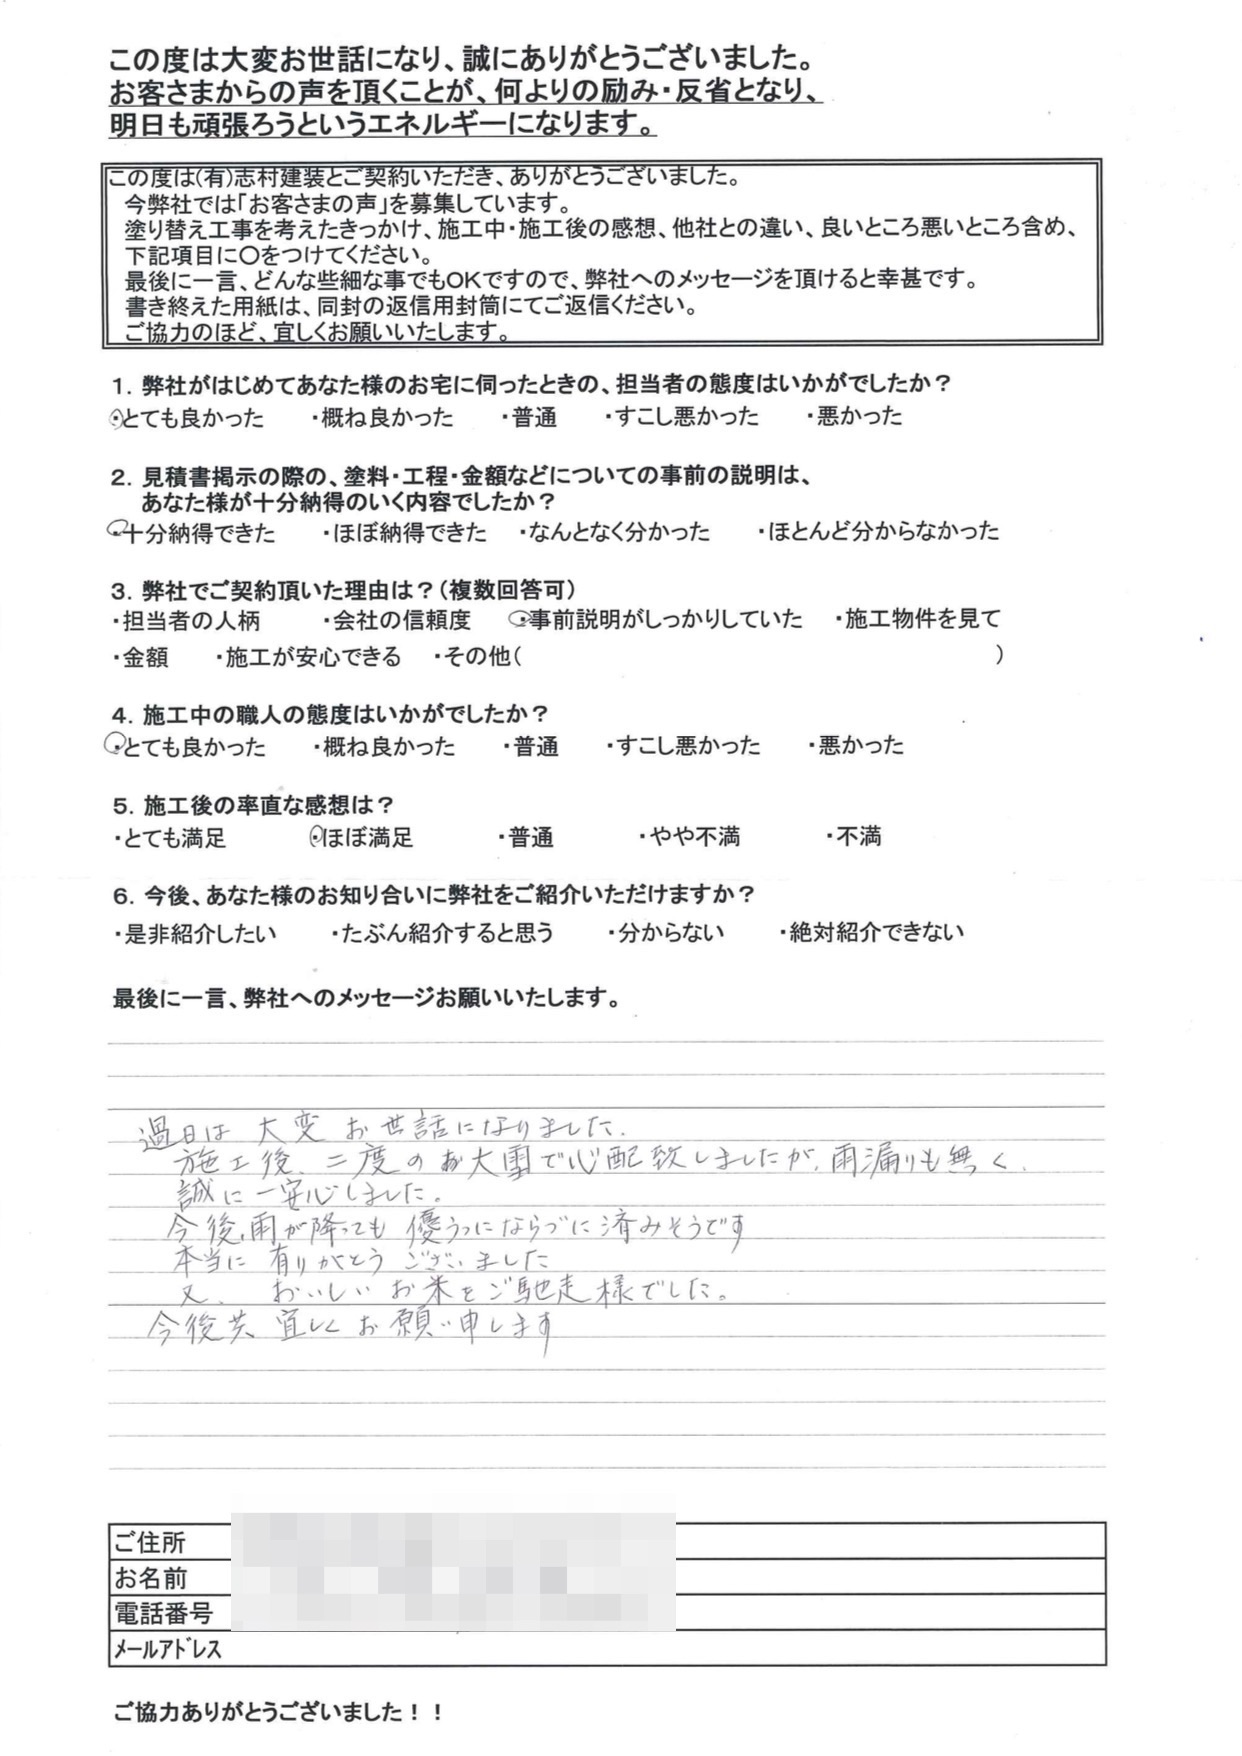 この度は大変お世話になり、誠にありがとうございました。
お客さまからの声を頂くことが、何よりの励み・反省となり、
明日も頑張ろうというエネルギーになります。
この度は(有)志村建装とご契約いただき、ありがとうございました。
今弊社では「お客さまの声」を募集しています。
塗り替え工事を考えたきっかけ、施工中・施工後の感想、他社との違い、良いところ悪いところ含め、
下記項目に〇をつけてください。
最後に一言、どんな些細な事でもOKですので、弊社へのメッセージを頂けると幸甚です。
書き終えた用紙は、同封の返信用封筒にてご返信ください。
ご協力のほど、宜しくお願いいたします。
1. 弊社がはじめてあなた様のお宅に伺ったときの、担当者の態度はいかがでしたか？
・とても良かった ・概ね良かった ・普通 ・すこし悪かった ・悪かった
2. 見積書掲示の際の、塗料・工程・金額などについての事前の説明は、
あなた様が十分納得のいく内容でしたか？
・十分納得できた ・ほぼ納得できた ・なんとなく分かった ・ほとんど分からなかった
3. 弊社でご契約頂いた理由は？(複数回答可)
・担当者の人柄 ・会社の信頼度 ・事前説明がしっかりしていた ・施工物件を見て
・金額 ・施工が安心できる ・その他( )
4. 施工中の職人の態度はいかがでしたか？
・とても良かった ・概ね良かった ・普通 ・すこし悪かった ・悪かった
5. 施工後の率直な感想は？
・とても満足 ・ほぼ満足 ・普通 ・やや不満 ・不満
6. 今後、あなた様のお知り合いに弊社をご紹介いただけますか？
・是非紹介したい ・たぶん紹介すると思う ・分からない ・絶対紹介できない
最後に一言、弊社へのメッセージお願いいたします。
過日は 大変 お世話になりました.
施工後、二度の 大雪で心配致しましたが、雨漏りも無く、
誠に一安心しました。
今後、雨が降っても 優うつにならづに済みそうです
本当に 有りがとう ございました
又、 おいしい お米をご馳走様でした。
今後共 宜しく お願い申します
ご住所
お名前
電話番号
メールアドレス
ご協力ありがとうございました！！